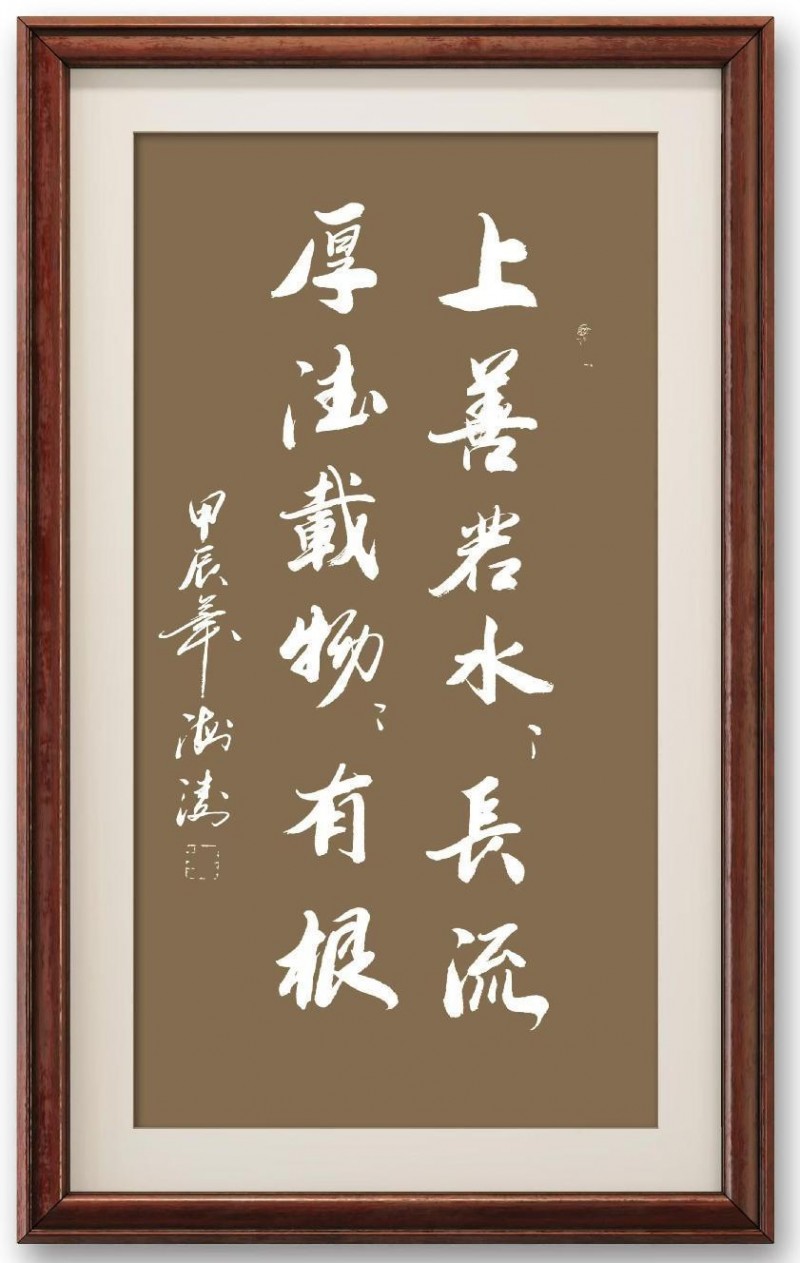 上善若水〻長流
厚德載物〻有根
甲辰年海濤